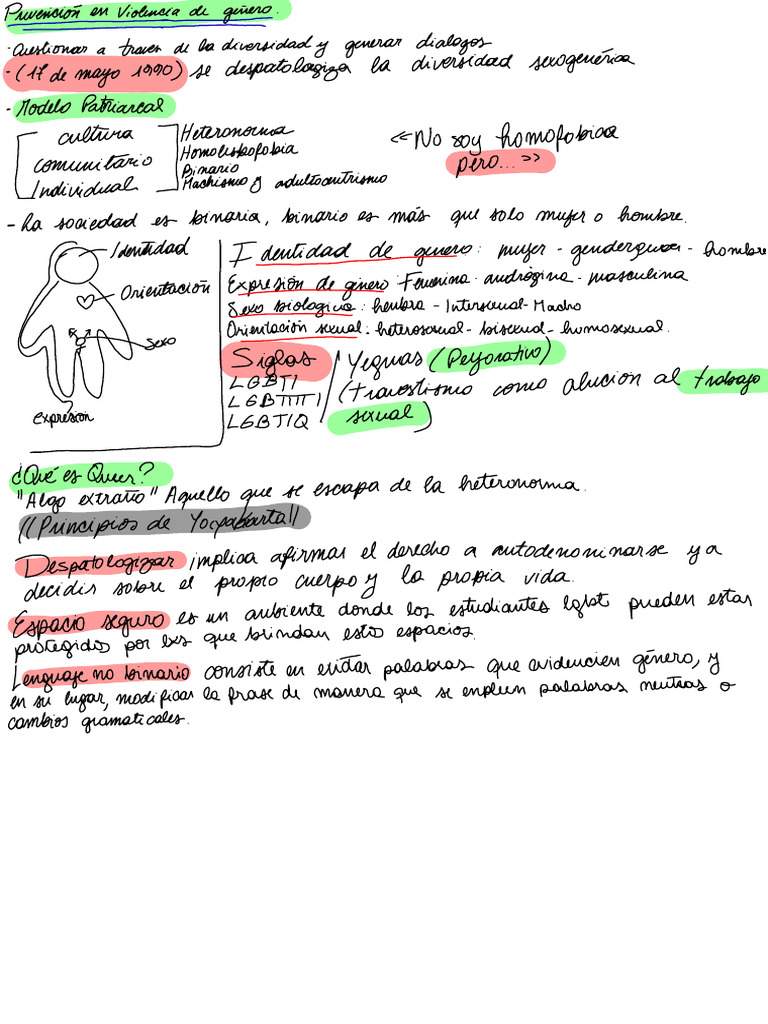 Prevención en Violencia de género.
· Cuestionar a traves de la diversidad y generar dialogos
· (17 de mayo 1990) se despatologiza la diversidad sexogenérica
- Modelo Patriarcal
cultura
comunitário
Individual
Heteronorma
Homolesbofobia
Binario
Machismo y adultocentrismo
<<No soy homofobica
pero...>>
- La sociedad es binaria, binario es más que solo mujer o hombre.
Identidad
Orientación
Sexo
Expresión
Identidad de genero: mujer - genderqueer - hombre
Expresión de género: Femenina - andrógina - masculina
Sexo biologico: hembra - Intersexual - Macho
Orientación sexual: heterosexual - bisexual - homosexual.
Siglas
LGBTI
LGBTTTI
LGBTIQ
Yeguas (Peyorativo)
(travestismo como alución al trabajo
sexual)
¿Qué es Queer?
"Algo extraño" Aquello que se escapa de la heteronorma.
//Principios de Yogyakarta//
Despatologizar implica afirmar el derecho a autodenominarse y a
decidir sobre el propio cuerpo y la propia vida.
Espacio seguro es un ambiente donde los estudiantes lgbt pueden estar
protegidos por lxs que brindan estos espacios.
Lenguaje no binario consiste en evitar palabras que evidencien género, y
en su lugar, modificar la frase de manera que se empleen palabras neutras o
cambios gramaticales.